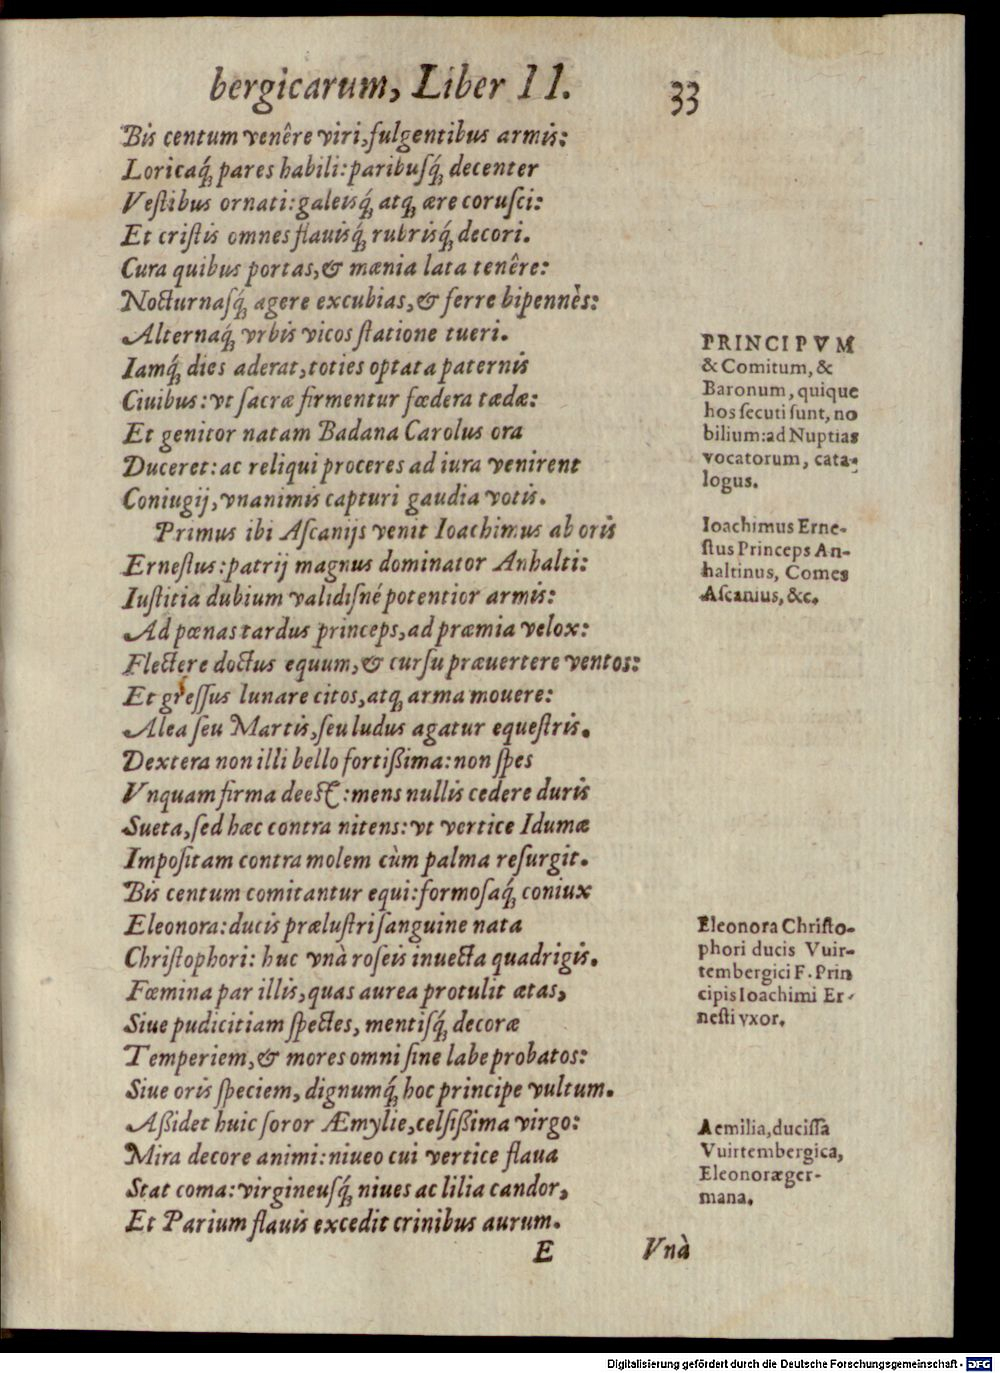 bergicarum, Liber II.
33
Bis centum venêre viri, fulgentibus armis:
Loricaq́; pares habili: paribusq́; decenter
Vestibus ornati: galeisq́; atq; ære corusci:
Et cristis omnes flauisq́; rubrisq́; decori.
Cura quibus portas, & mœnia lata tenêre:
Nocturnasq́; agere excubias, & ferre bipennes:
Alternaq́; vrbis vicos statione tueri.
Iamq́; dies aderat, toties optata paternis
Ciuibus: vt sacræ firmentur fœdera tædæ:
Et genitor natam Badana Carolus ora
Duceret: ac reliqui proceres ad iura venirent
Coniugij, vnanimis capturi gaudia votis.
Primus ibi Ascanijs venit Ioachimus ab oris
Ernestus: patrij magnus dominator Anhalti:
Iustitia dubium validisné potentior armis:
Ad pœnas tardus princeps, ad præmia velox:
Flectere doctus equum, & cursu præuertere ventos:
Et gressus lunare citos, atq; arma mouere:
Alea seu Martis, seu ludus agatur equestris.
Dextera non illi bello fortißima: non spes
Vnquam firma deest: mens nullis cedere duris
Sueta, sed hæc contra nitens: vt vertice Idumæ
Impositam contra molem cùm palma resurgit.
Bis centum comitantur equi: formosaq́; coniux
Eleonora: ducis prælustri sanguine nata
Christophori: huc vnà roseis inuecta quadrigis.
Fœmina par illis, quas aurea protulit ætas,
Siue pudicitiam spectes, mentisq́; decoræ
Temperiem, & mores omni sine labe probatos:
Siue oris speciem, dignumq́; hoc principe vultum.
Aßidet huic soror Æmylie, celsißima virgo:
Mira decore animi: niueo cui vertice flaua
Stat coma: virgineusq́; niues ac lilia candor,
Et Parium flauis excedit crinibus aurum.
E
Vnà
PRINCIPVM
& Comitum, &
Baronum, quique
hos secuti sunt, no
bilium: ad Nuptias
vocatorum, cata-
logus.
Ioachimus Erne-
stus Princeps An-
haltinus, Comes
Ascanius, &c.
Eleonora Christo-
phori ducis Vuir-
tembergici F. Prin
cipis Ioachimi Er-
nesti vxor.
Aemilia, ducissa
Vuirtembergica,
Eleonoræ ger-
mana.
Digitalisierung gefördert durch die Deutsche Forschungsgemeinschaft - DFG